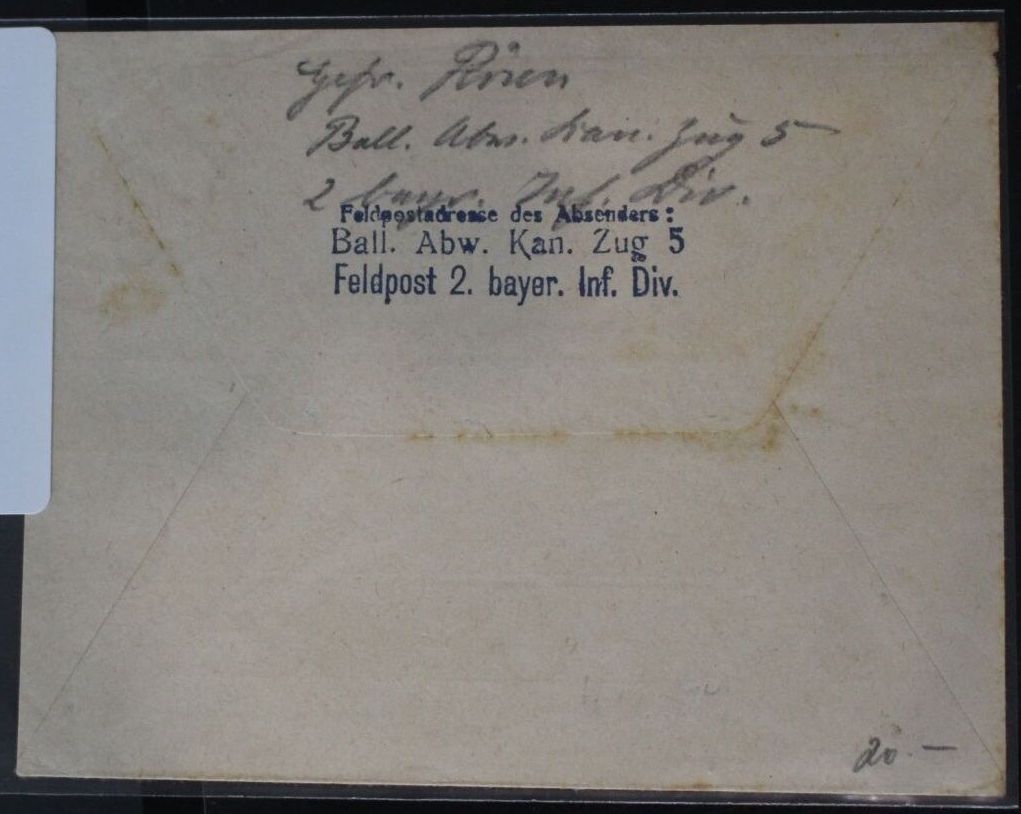 Gefr.
Ball. Abw. Kan. Zug 5
2 bayr. Inf. Div.
Feldpostadresse des Absenders:
Ball. Abw. Kan. Zug 5
Feldpost 2. bayer. Inf. Div.
20.—